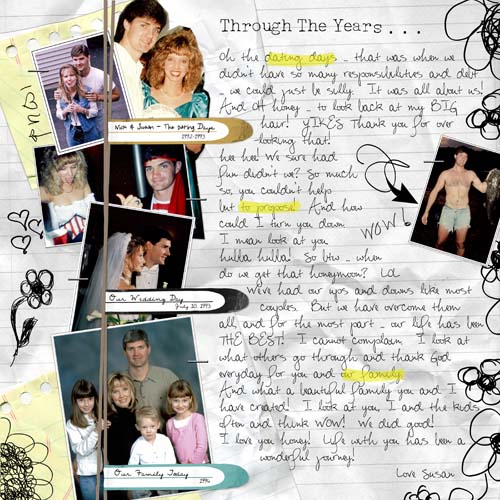 Through The Years . . .
Oh the dating days - that was when we
didn't have so many responsibilities and debt
- we could just be silly. It was all about us!
And oh honey - to look back at my BIG
hair! YIKES Thank you for over
looking that!
hee hee! We sure had
fun didn't we? So much
so, you couldn't help
but to propose! And how
could I turn you down.
I mean look at you
hulla hulla! So btw - when
do we get that honeymoon? Lol
We've had our ups and downs like most
couples. But we have overcome them
all, and for the most part - our life has been
THE BEST! I cannot complain. I look at
what others go through and thank God
everyday for you and our family.
And what a beautiful family you and I
have created! I look at you I and the kids
often and think WOW! We did good!
I love you honey! Life with you has been a
wonderful journey!
Love Susan
& Susan - The Dating Days
1992-1993
WOW!
Our Wedding Day
July 10, 1993
Our Family Today